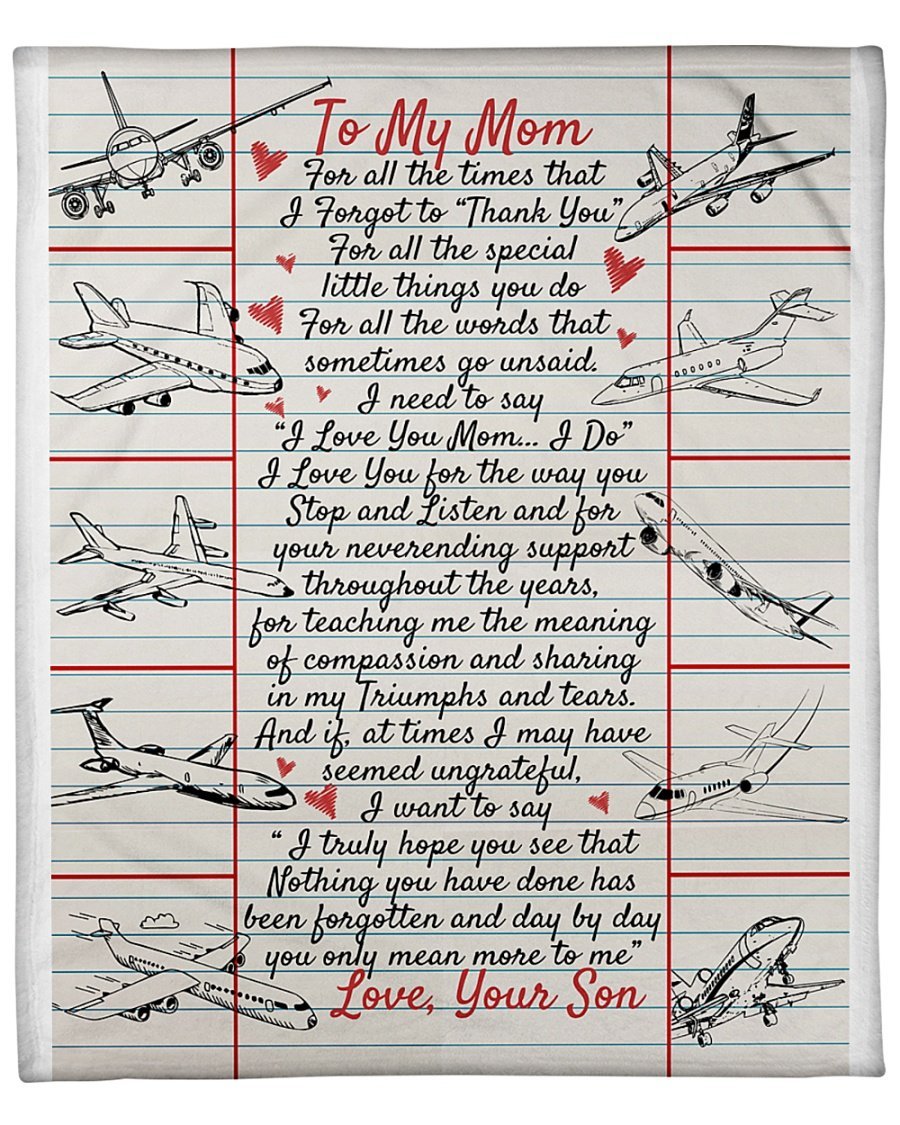 To My Mom
For all the times that
I Forgot to “Thank You”
For all the special
little things you do
For all the words that
sometimes go unsaid.
I need to say
“I Love You Mom... I Do”
I Love You for the way you
Stop and Listen and for
your neverending support
throughout the years,
for teaching me the meaning
of compassion and sharing
in my Triumphs and tears.
And if, at times I may have
seemed ungrateful,
I want to say
“ I truly hope you see that
Nothing you have done has
been forgotten and day by day
you only mean more to me”
Love, Your Son